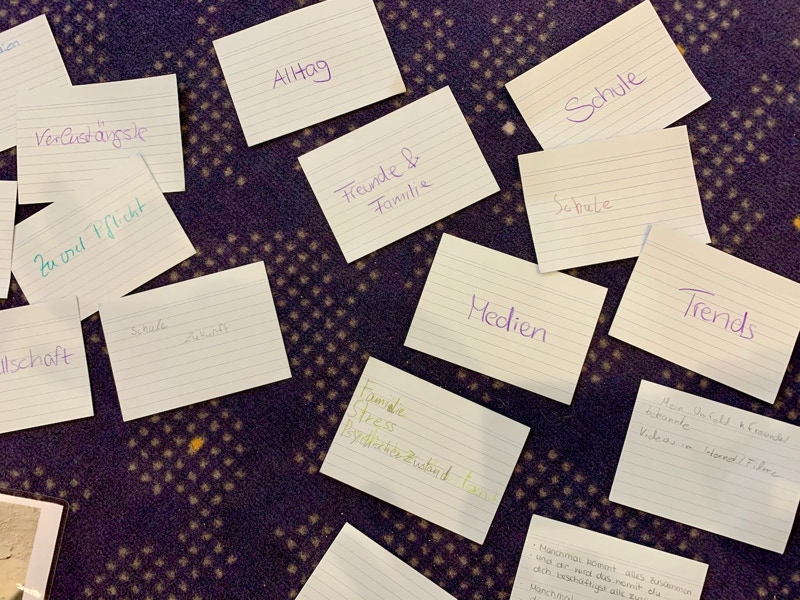 Alltag
Schule
Verlustängste
Freunde &
Familie
Schule
Zu viel Pflicht
Trends
Medien
llschaft
Schule
Zukunft
Familie
Stress
Psychischer Zustand
Mein Umfeld
bekannte
Videos im Internet/Filme
· Manchmal kommt alles zusammen
und dir wird das womit du
dich beschäftigst alle
Manchmal